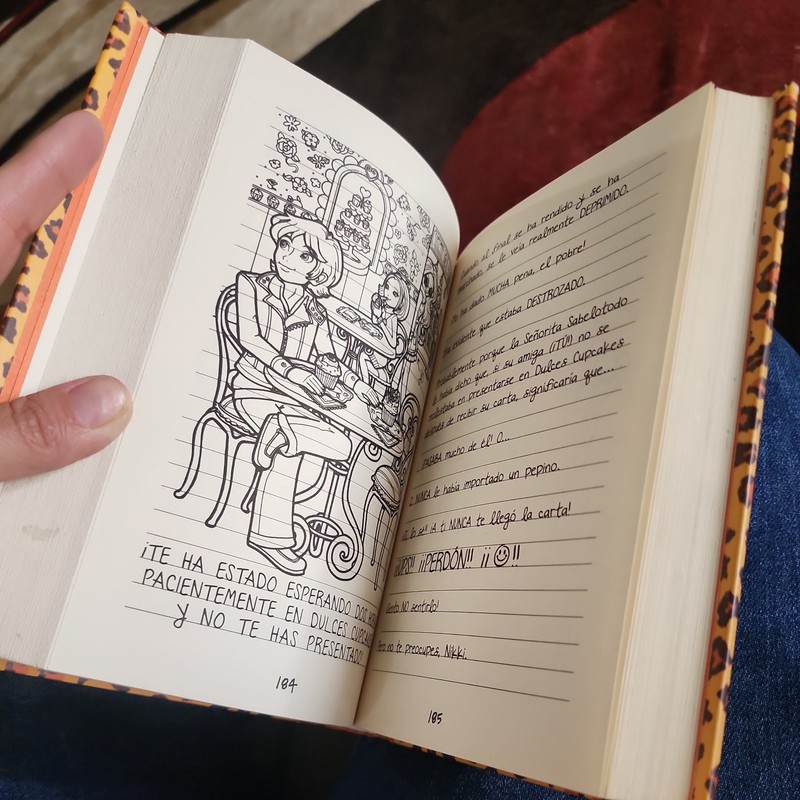 ¡TE HA ESTADO ESPERANDO DOS
PACIENTEMENTE EN DULCES
Y NO TE HAS PRESENTADO!
184
al final se ha rendido y se ha
se le veía realmente DEPRIMIDO.
ha dado MUCHA pena, el pobre!
evidente que estaba DESTROZADO.
porque la Señorita Sabelotodo
había dicho que, si su amiga (¡TÚ!) no se
en presentarse en Dulces Cupcakes
después de recibir su carta, significaría que...
mucho de él! O...
2. NUNCA le había importado un pepino.
lo sé!! ¡A ti NUNCA te llegó la carta!
¡¡UPS!! ¡¡PERDÓN!! ¡¡☺!!
NO sentirlo!
Pero no te preocupes, Nikki.
185